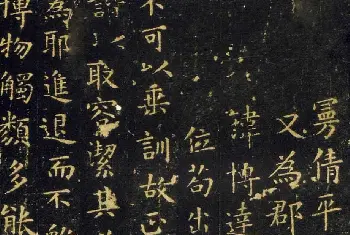 曼倩平
又為郡
瑋博達
位苟出
不可以垂訓故正
諧以取容潔其
為耶進退而不離
博物觸類多能